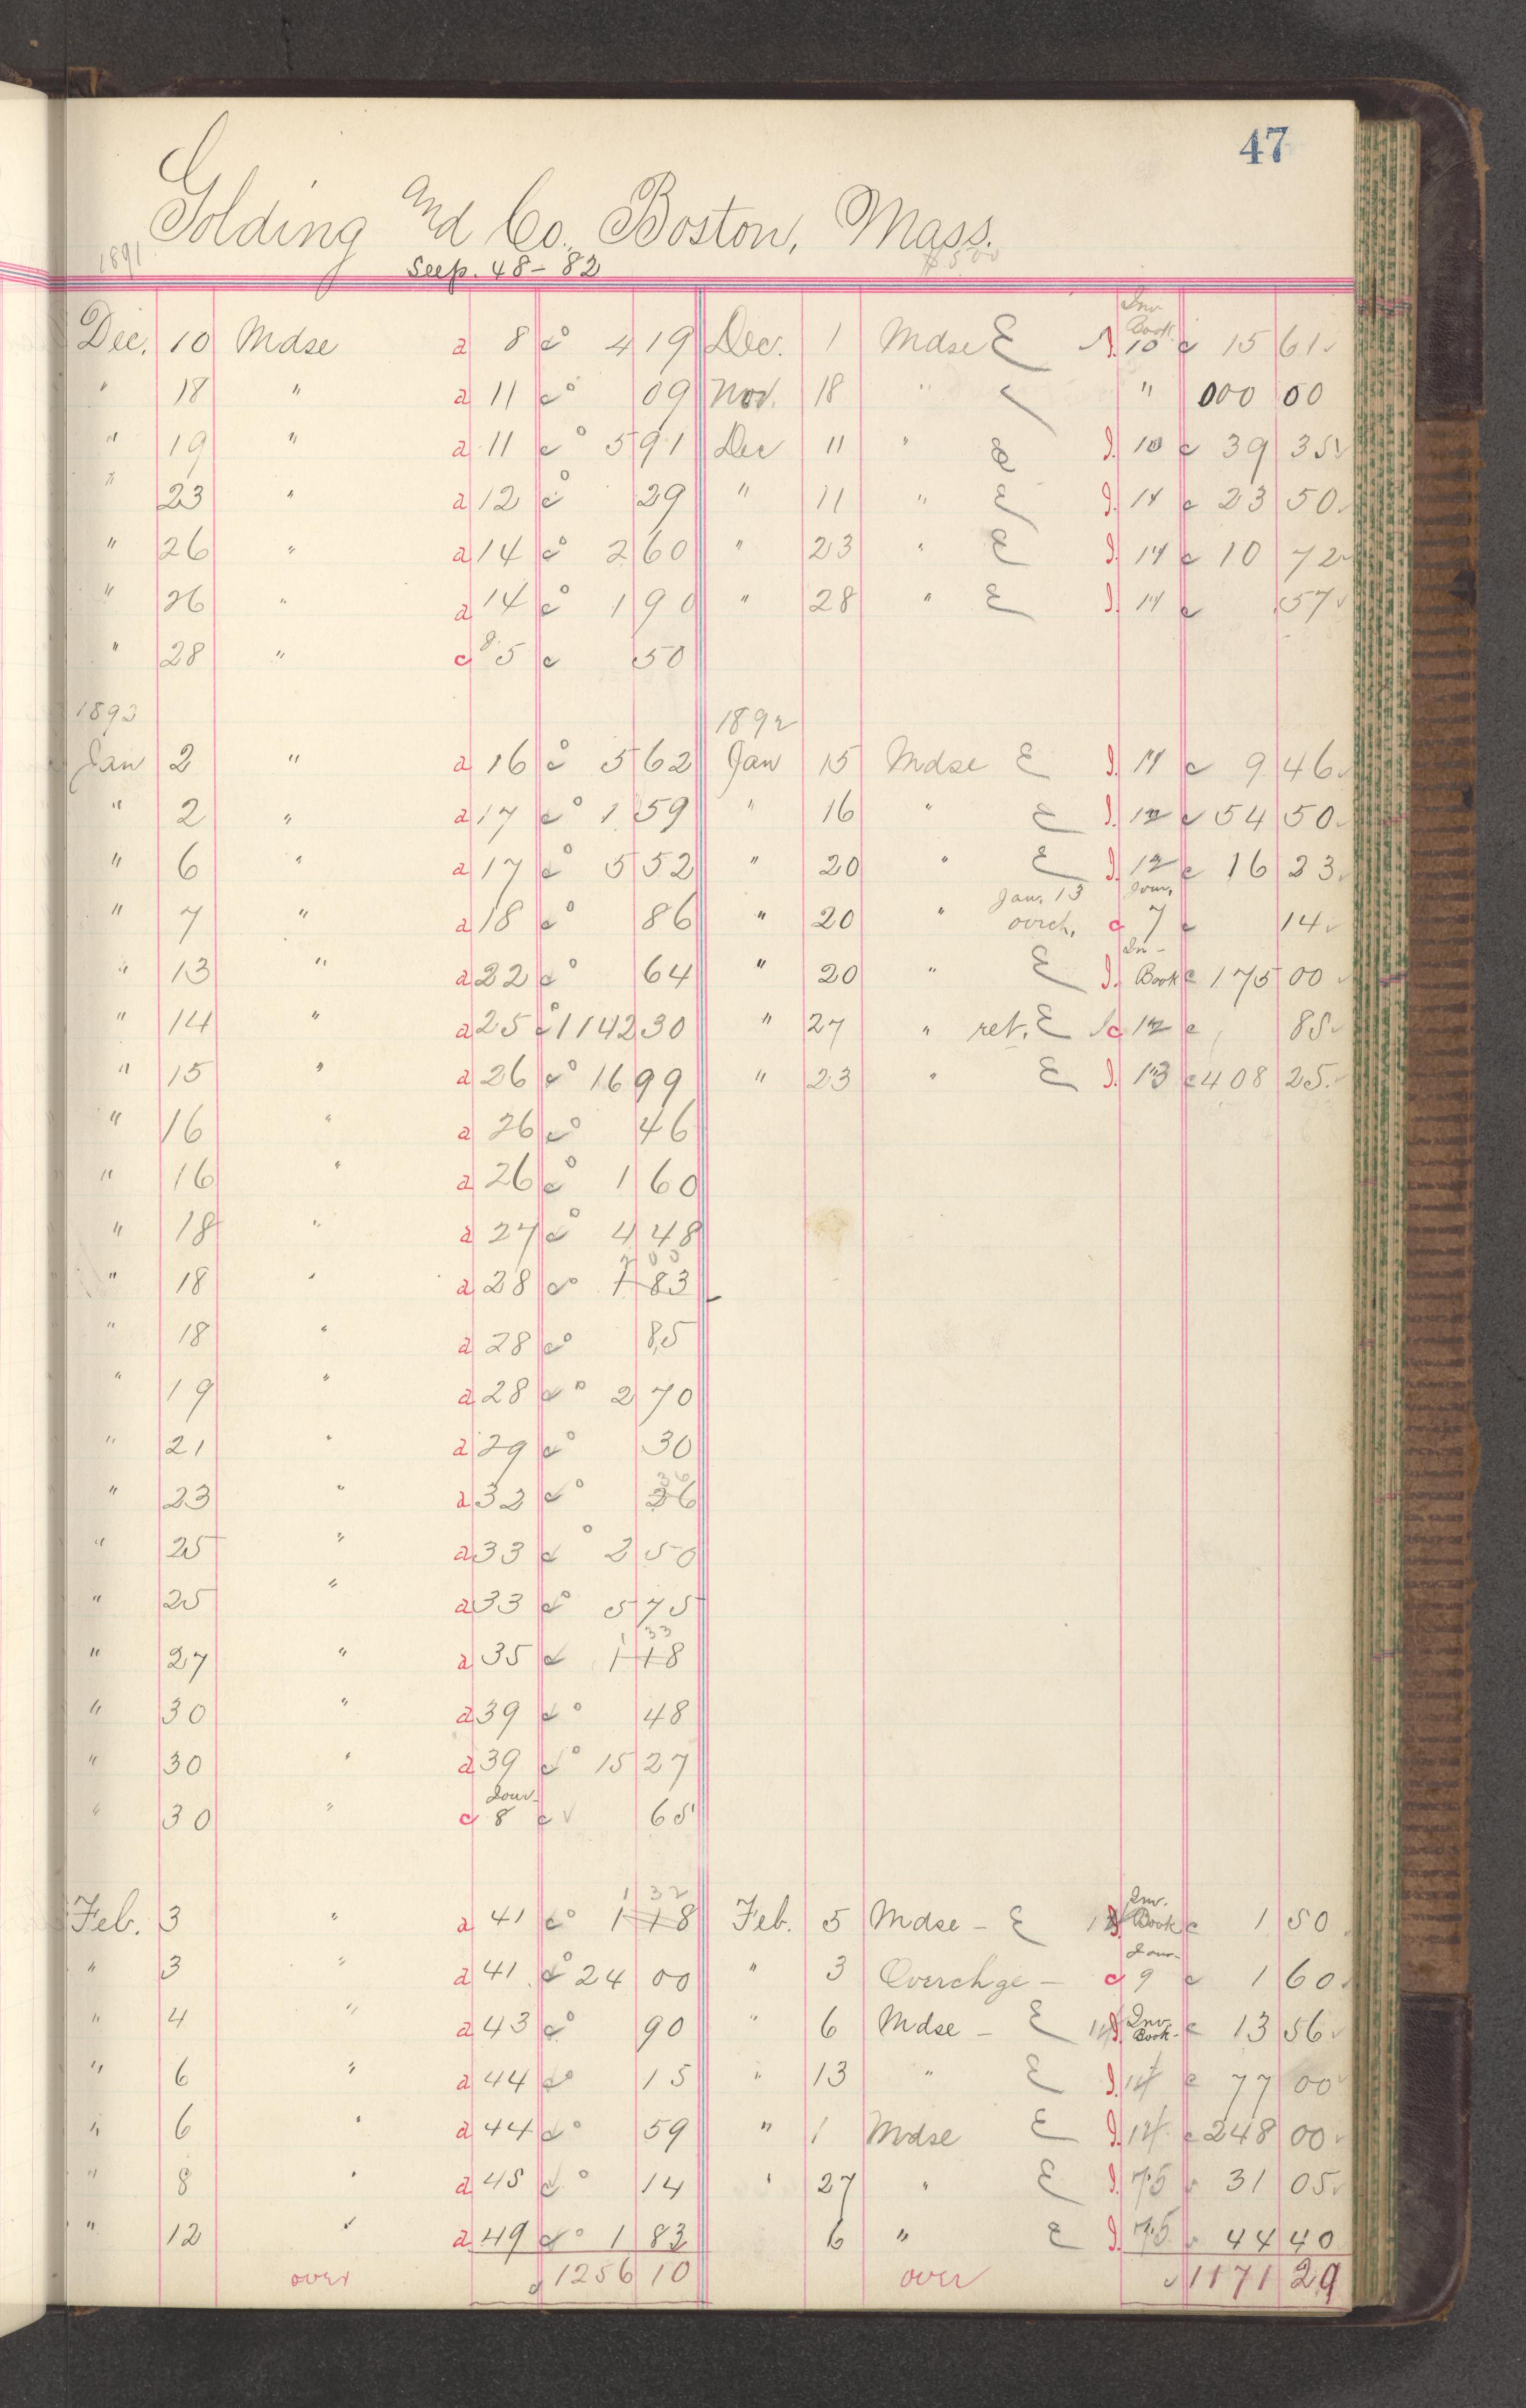 47
Golding and Co. Boston, Mass.
1891 See p. 48 - 82 $500
Inv Book
Dec. 10 Mdse a 8 c° 4 19 Dec. 1 Mdse E I. 10 c 15 61 ✓
" 18 " a 11 c° 09 Nov. 18 " ✓ " 000 00
" 19 " a 11 c° 5 91 Dec 11 " E I. 10 c 39 35 ✓
" 23 " a 12 c° 29 " 11 " E I. 11 c 23 50 ✓
" 26 " a 14 c° 2 60 " 23 " E I. 11 c 10 72 ✓
" 26 " a 14 c° 1 90 " 28 " E I. 11 c 57 ✓
" 28 " c 5 c 50
1892 1892
Jan 2 " a 16 c° 5 62 Jan 15 Mdse E I. 11 c 9 46 ✓
" 2 " a 17 c° 1 59 " 16 " E I. 12 c 54 50 ✓
" 6 " a 17 c° 5 52 " 20 " E I. 12 c 16 23 ✓
" 7 " a 18 c° 86 " 20 " Jan. 13 overch. c Jour. 7 c 14 ✓
" 13 " a 22 c° 64 " 20 " E I. In- Book c 175 00 ✓
" 14 " a 25 c° 1142 30 " 27 " ret. E c 12 c 85 ✓
" 15 " a 26 c° 16 99 " 23 " E I. 13 c 408 25 ✓
" 16 " a 26 c° 46
" 16 " a 26 c° 1 60
" 18 " a 27 c° 4 48
2 00
" 18 " a 28 c° 1 83
" 18 " a 28 c° 85
" 19 " a 28 c° 2 70
" 21 " a 29 c° 30
36
" 23 " a 32 c° 26
" 25 " a 33 c° 2 50
" 25 " a 33 c° 5 75
1 33
" 27 " a 35 c 1 18
" 30 " a 39 c° 48
" 30 " a 39 c° 15 27
Jour-
" 30 " c 8 c ✓ 65
1 32
Feb. 3 " a 41 c° 1 18 Feb. 5 Mdse - E I. Inv. Book c 1 50
" 3 " a 41 c° 24 00 " 3 Overchge - c Jour- 9 c 1 60 ✓
" 4 " a 43 c° 90 " 6 Mdse - E 14 I. Inv. Book- c 13 56 ✓
" 6 " a 44 c° 15 " 13 " E I. 14 c 77 00 ✓
" 6 " a 44 c° 59 " 1 Mdse E I. 14 c 248 00 ✓
" 8 " a 45 c° 14 " 27 " E I. 15 c 31 05 ✓
" 12 " a 49 c° 1 83 6 " E I. 15 c 44 40
over 1256 10 over 1171 29